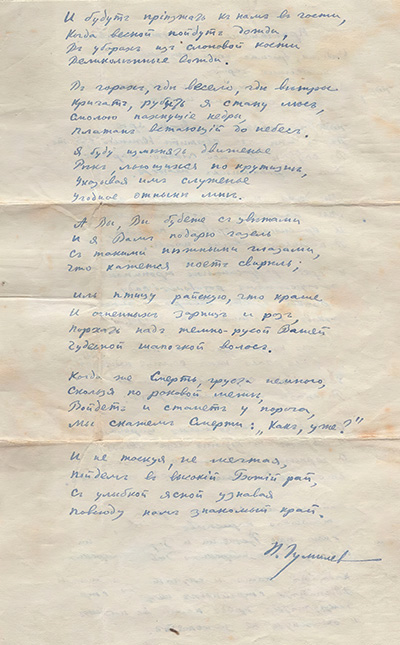 И будутъ прiѣзжать къ намъ въ гости,
Когда весной пойдутъ дожди,
Въ уборахъ изъ слоновой кости
Великолѣпные вожди.
Въ горахъ, гдѣ весело, гдѣ вѣтры
Кричатъ, рубить я стану лѣсъ,
Смолою пахнущiе кедры,
Платанъ встающiй до небесъ.
Я буду измѣнять движенье
Рѣкъ, льющихся по крутизнѣ,
Указывая имъ служенье
Угодное отнынѣ мнѣ.
А Вы, Вы будете съ цвѣтами
И я Вамъ подарю газель
Съ такими нѣжными глазами,
Что кажется поетъ свирѣль;
иль птицу райскую, что краше
И огненныхъ зарницъ и розъ,
Порхать надъ темно-русой Вашей
Чудесной шапочкой волосъ.
Когда же Смерть, грустя немного,
Скользя по роковой межѣ,
Войдетъ и станетъ у порога,
Мы скажемъ Смерти: „Какъ, уже?"
И не тоскуя, не мечтая,
Пойдемъ въ высокiй Божiй рай,
Съ улыбкой ясной узнавая
Повсюду намъ знакомый край.
Н. Гумилев